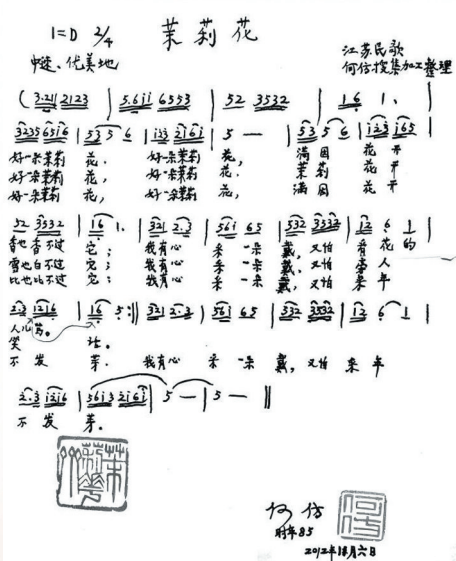 茉莉花
1=D 2/4
中速、优美地
江苏民歌
何仿搜集加工整理
(3·2 1 1 2 1 2 3 | 5·6 i i 6 5 5 3 | 5 2 3 5 3 2 | 1 6 1·)
3 2 3 5 6 5 i 6 | 5 3 5 6 | i 2 3 2 i 6 i | 5 — | 5 3 5 6 | i 2 3 i 6 5 |
好一朵茉莉 花, 好一朵茉莉 花, 满园 花 开
好一朵茉莉 花, 好一朵茉莉 花, 茉莉 花 开
好一朵茉莉 花, 好一朵茉莉 花, 满园 花 开
5 2 3 5 3 2 | 1 6 1· | 3 2 1 2·3 | 5 6 i 6 5 | 5 3 2 3 5 3 2 | 1 2 6 1 |
香也香不过 它; 我有心 采 一朵 戴, 又怕 看 花的
雪也白不过 它; 我有心 采 一朵 戴, 又怕 旁 人
比也比不过 它; 我有心 采 一朵 戴, 又怕 来 年
2·3 1 2 1 6 | 1 6 5 :|| 3 2 1 2·3 | 5 6 i 6 5 | 5 3 2 3 5 3 2 | 1 2 6 1 |
人儿骂。
笑 话。
不 发 芽. 我有心 采 一朵 戴, 又怕 来 年
2·3 1 2 1 6 | 5 6 1 3 2 1 6 1 | 5 — | 5 — ||
不 发 芽。
茉莉花
何仿
何仿
时年85